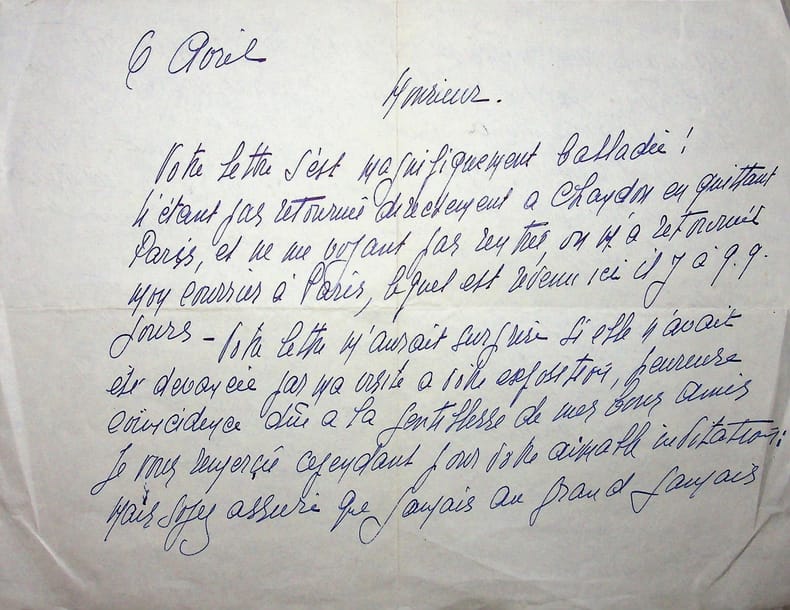 6 Avril
Monsieur.
Votre lettre s'est magnifiquement balladée !
N'étant pas retournée directement a Chandon en quittant
Paris, et ne me voyant pas rentrée on m'a retourné
mon courrier à Paris, lequel est revenu ici il y a q.q.
jours - Votre lettre m'aurait surprise si elle n'avait
été devancée par ma visite a votre exposition, heureuse
coincidence dûe a la gentillesse de mes bons amis
Je vous remercie cependant pour votre aimable invitation ;
mais soyez assuré que jamais au grand jamais